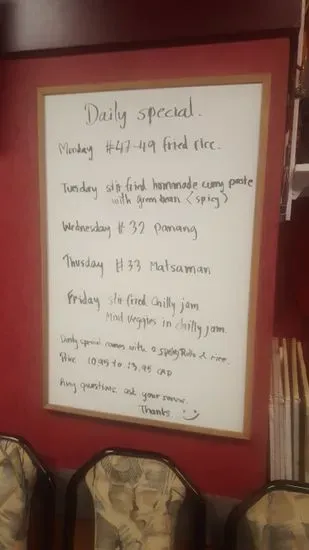 Daily special.
Monday #47-49 fried rice.
Tuesday stir fried hommade curry paste
with green bean (spicy)
Wednesday #32 Panang
Thusday #33 Matsaman
Friday stir fried chilly jam
Mixd veggies in chilly jam.
Daily special comes with 2 Spring Rolls & rice.
Price 10.95 to 13.95 CAD
Any questions, ask your server.
Thanks :)